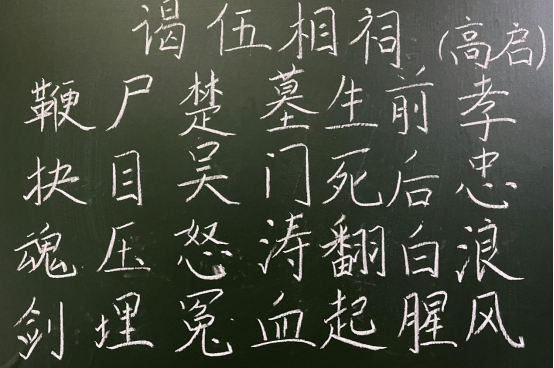 谒伍相祠(高启)
鞭尸楚墓生前孝
抉目吴门死后忠
魂压怒涛翻白浪
剑埋冤血起腥风